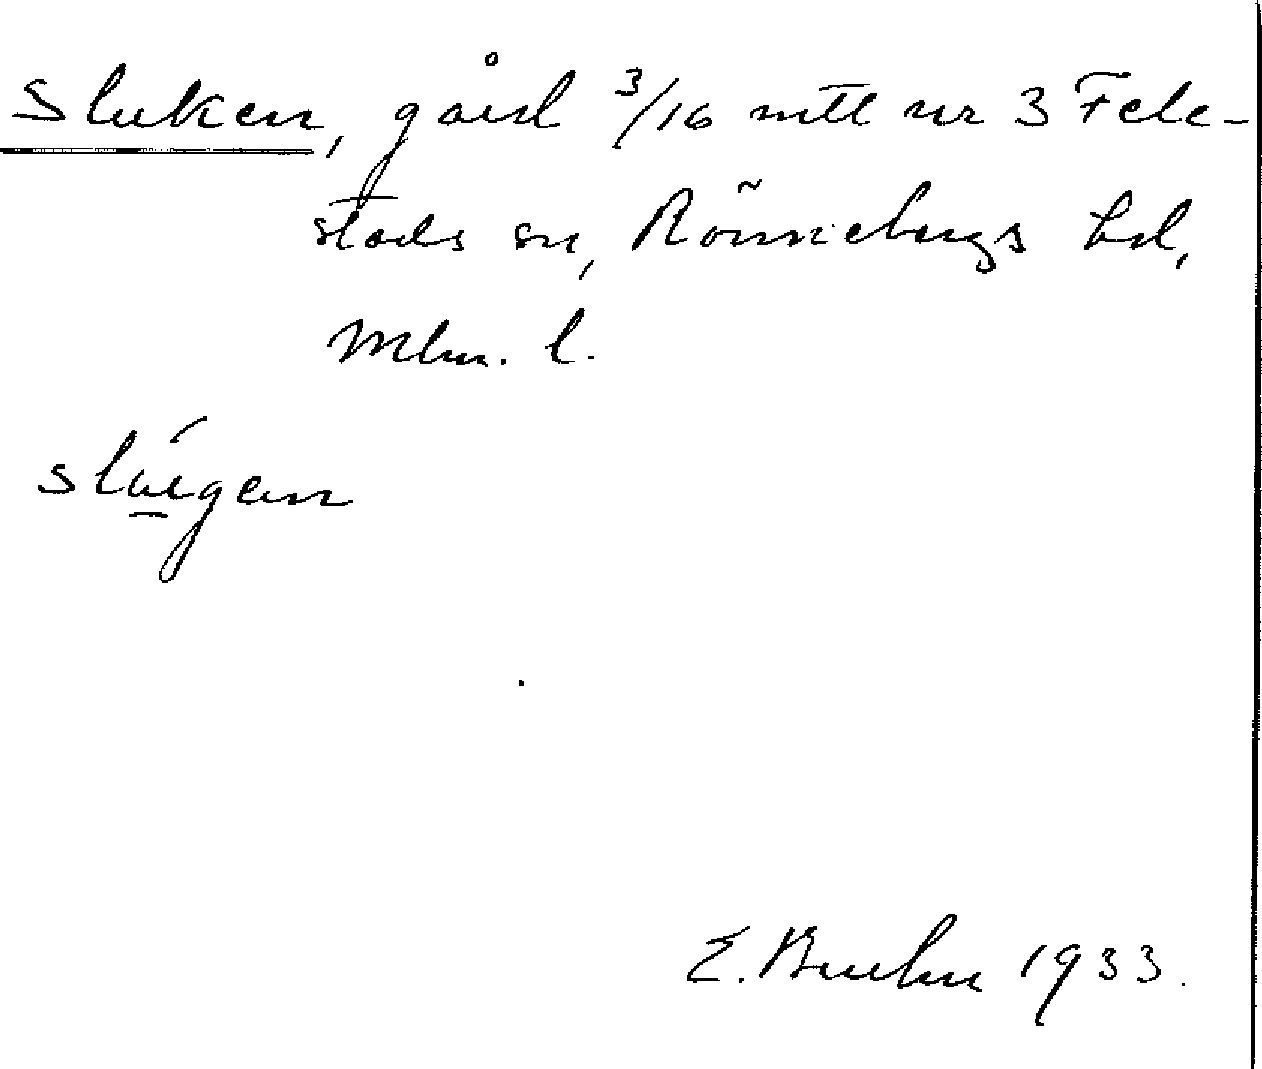 Sluken, gård 3/16 mtl nr 3 Fele-
stads sn, Rönnebergs hd,
Mlm. l.
slú̱gen
E. Bruhn 1933.